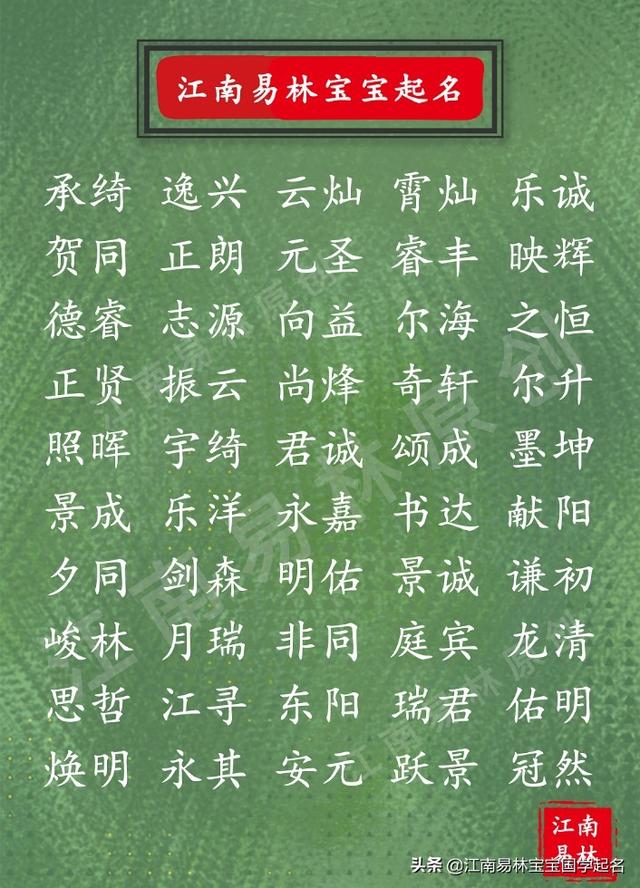 江南易林宝宝起名
承绮 逸兴 云灿 霄灿 乐诚
贺同 正朗 元圣 睿丰 映辉
德睿 志源 向益 尔海 之恒
正贤 振云 尚烽 奇轩 尔升
照晖 宇绮 君诚 颂成 墨坤
景成 乐洋 永嘉 书达 献阳
夕同 剑森 明佑 景诚 谦初
峻林 月瑞 非同 庭宾 龙清
思哲 江寻 东阳 瑞君 佑明
焕明 永其 安元 跃景 冠然
江南易林原创
江南易林原创
江南易林原创
江南易林原创
江南
易林
头条 @江南易林宝宝国学起名